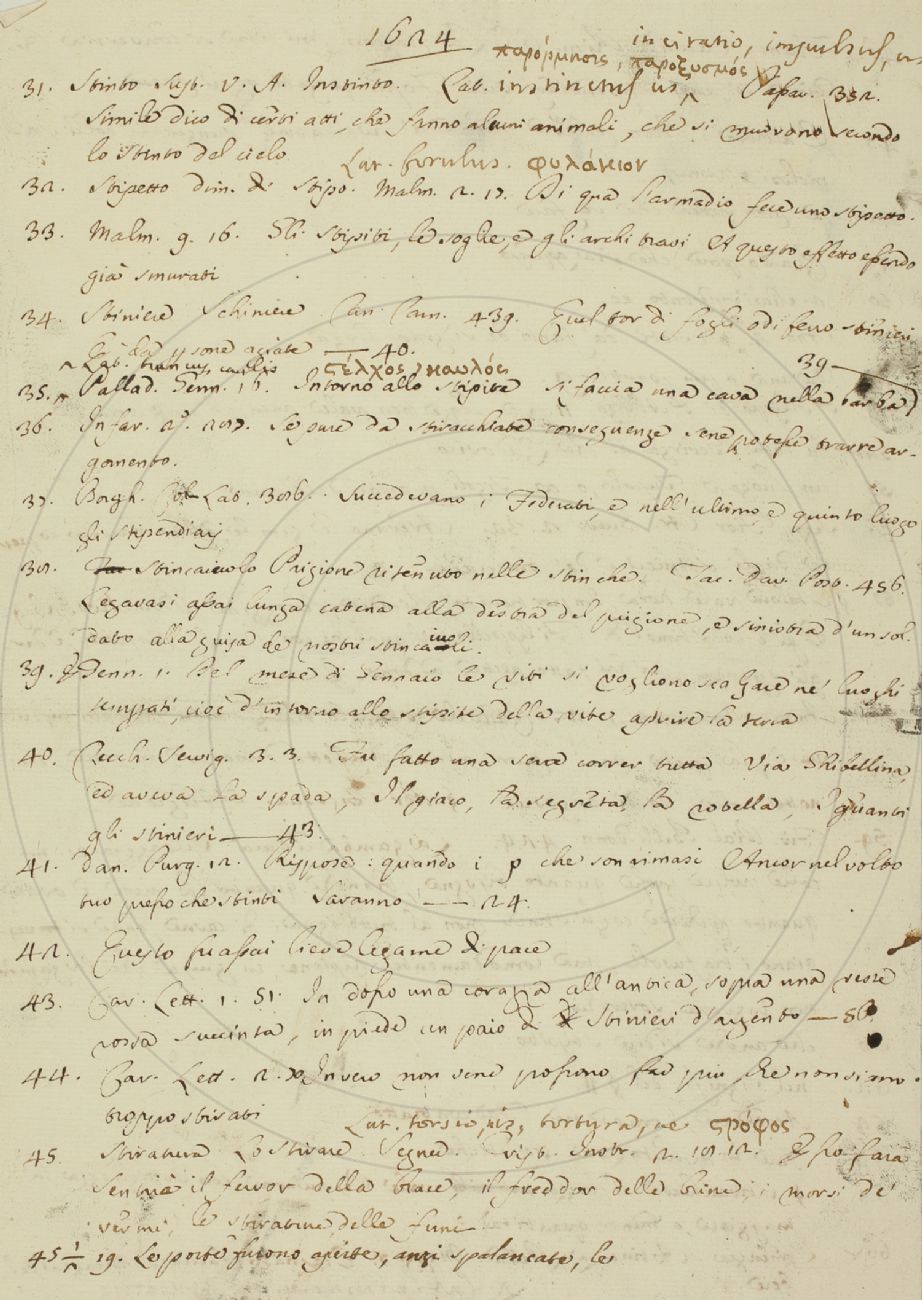 1624
incitatio, impulsus, us
παρόρμησις, παροξυσμός
31. Stinto Sust. V. A. Instinto. Lat. instinctus us, Passav. 332.
Simile dico di certi atti, che fanno alcuni animali, che si muovono secondo
lo stinto del cielo
Lat. forulus. φυλάκιον
32. Stipetto dim. di Stipo. Malm. 2. 17. Di qua l'armadio fece uno stipetto.
33. Malm. 9. 16. Gli stipiti, le soglie, e gli architravi A questo effetto essendo
già smurati
34. Stiniere Schiniere Can. Carn. 439. Quel tor di fogli o di ferro stinieri
È da persone agiate — 40.
39
Lat. truncus, caulis στέλχος, καυλός
35. Pallad. Genn. 16. Intorno allo stipite si faccia una cava nella barba
36. Infar. 2º. 207. Se pure da stiracchiate conseguenze sene potesse trarre ar-
gomento.
37. Borgh. Col. Lat. 386. Succedevano i Federati, e nell'ultimo, e quinto luogo
gli Stipendiarj
38. Stincaiuolo Prigione ritenuto nelle stinche. Tac. Dav. Post. 456.
Legavasi assai lunga catena alla destra del prigione, e sinistra d'un sol
dato alla guisa de nostri stincaiuoli.
39. Genn. 1. Del mese di Gennaio le viti si vogliono scalzare ne' luoghi
temperati, cioè d'intorno allo stipite della vite aprire la terra
40. Cecch. Servig. 3. 3. Fu fatto una sera correr tutta Via Ghibellina,
ed aveva La spada, Il giaco, la segreta, la rotella, I guanti
gli stinieri — 43.
41. Dan. Purg. 12. Rispose: quando i p che son rimasi Ancor nel volto
tuo presso che stinti Saranno — 24.
42. Questo fu assai lieve legame di pace
43. Car. Lett. 1. 51. In dosso una corazza all'antica, sopra una veste
rossa succinta, in piede un paio di Stinieri d'argento —
44. Car. Lett. 2. Invero non sene possono far più che non siamo
troppo stirati
Lat. torsio, nis, tortura, ae στρόφος
45. Stiratura Lo stirare Segner. Crist. Instr. 2. 18. 12. Esso farà
sentire il fervor della brace, il freddor delle brine, i morsi de'
vermi, le stirature delle funi
45 1/2 19. Le porte furono aperte, anzi spalancate, le